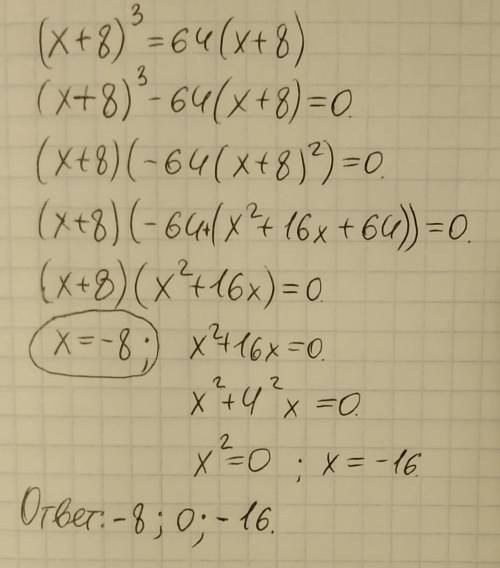 (x+8)³=64(x+8)
(x+8)³-64(x+8)=0.
(x+8)(-64(x+8)²)=0.
(x+8)(-64+(x²+16x+64))=0.
(x+8)(x²+16x)=0.
x=-8; x²+16x=0.
x²+4²x=0.
x²=0; x=-16.
Ответ: -8; 0; -16.